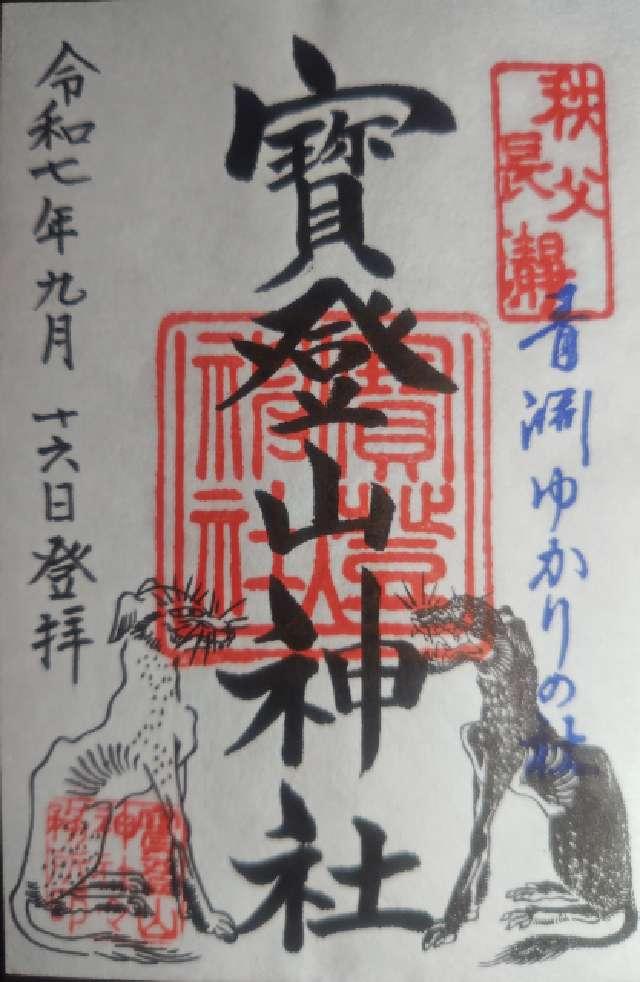 秩父
長瀞
青渊ゆかりの社
寶登山神社
寶登山
神社
令和七年九月十六日登拝